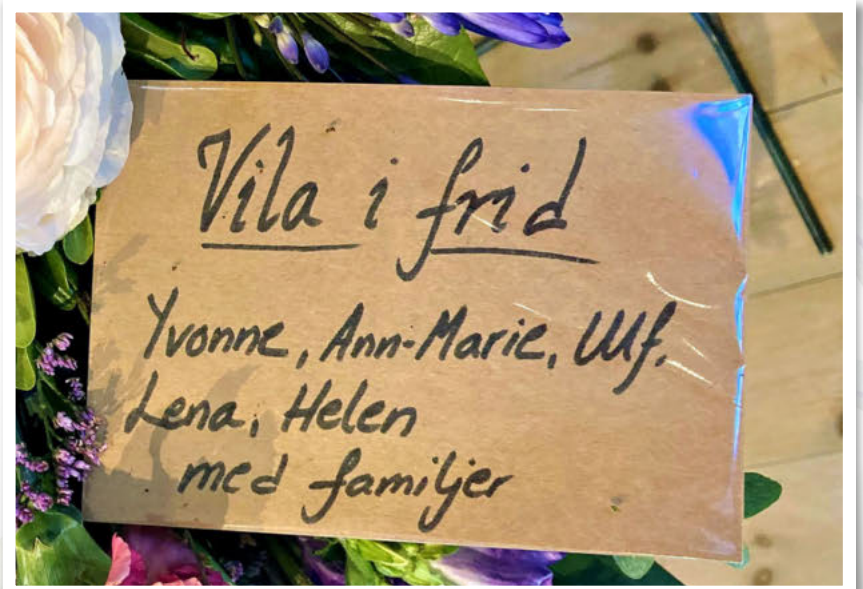 Vila i frid
Yvonne, Ann-Marie, Ulf,
Lena, Helen
med familjer